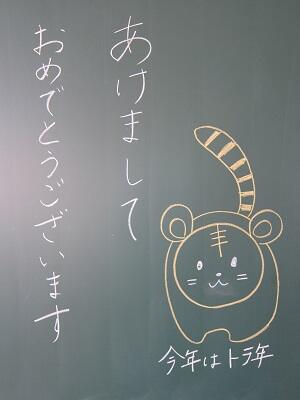 あけまして
おめでとうございます
今年はトラ年